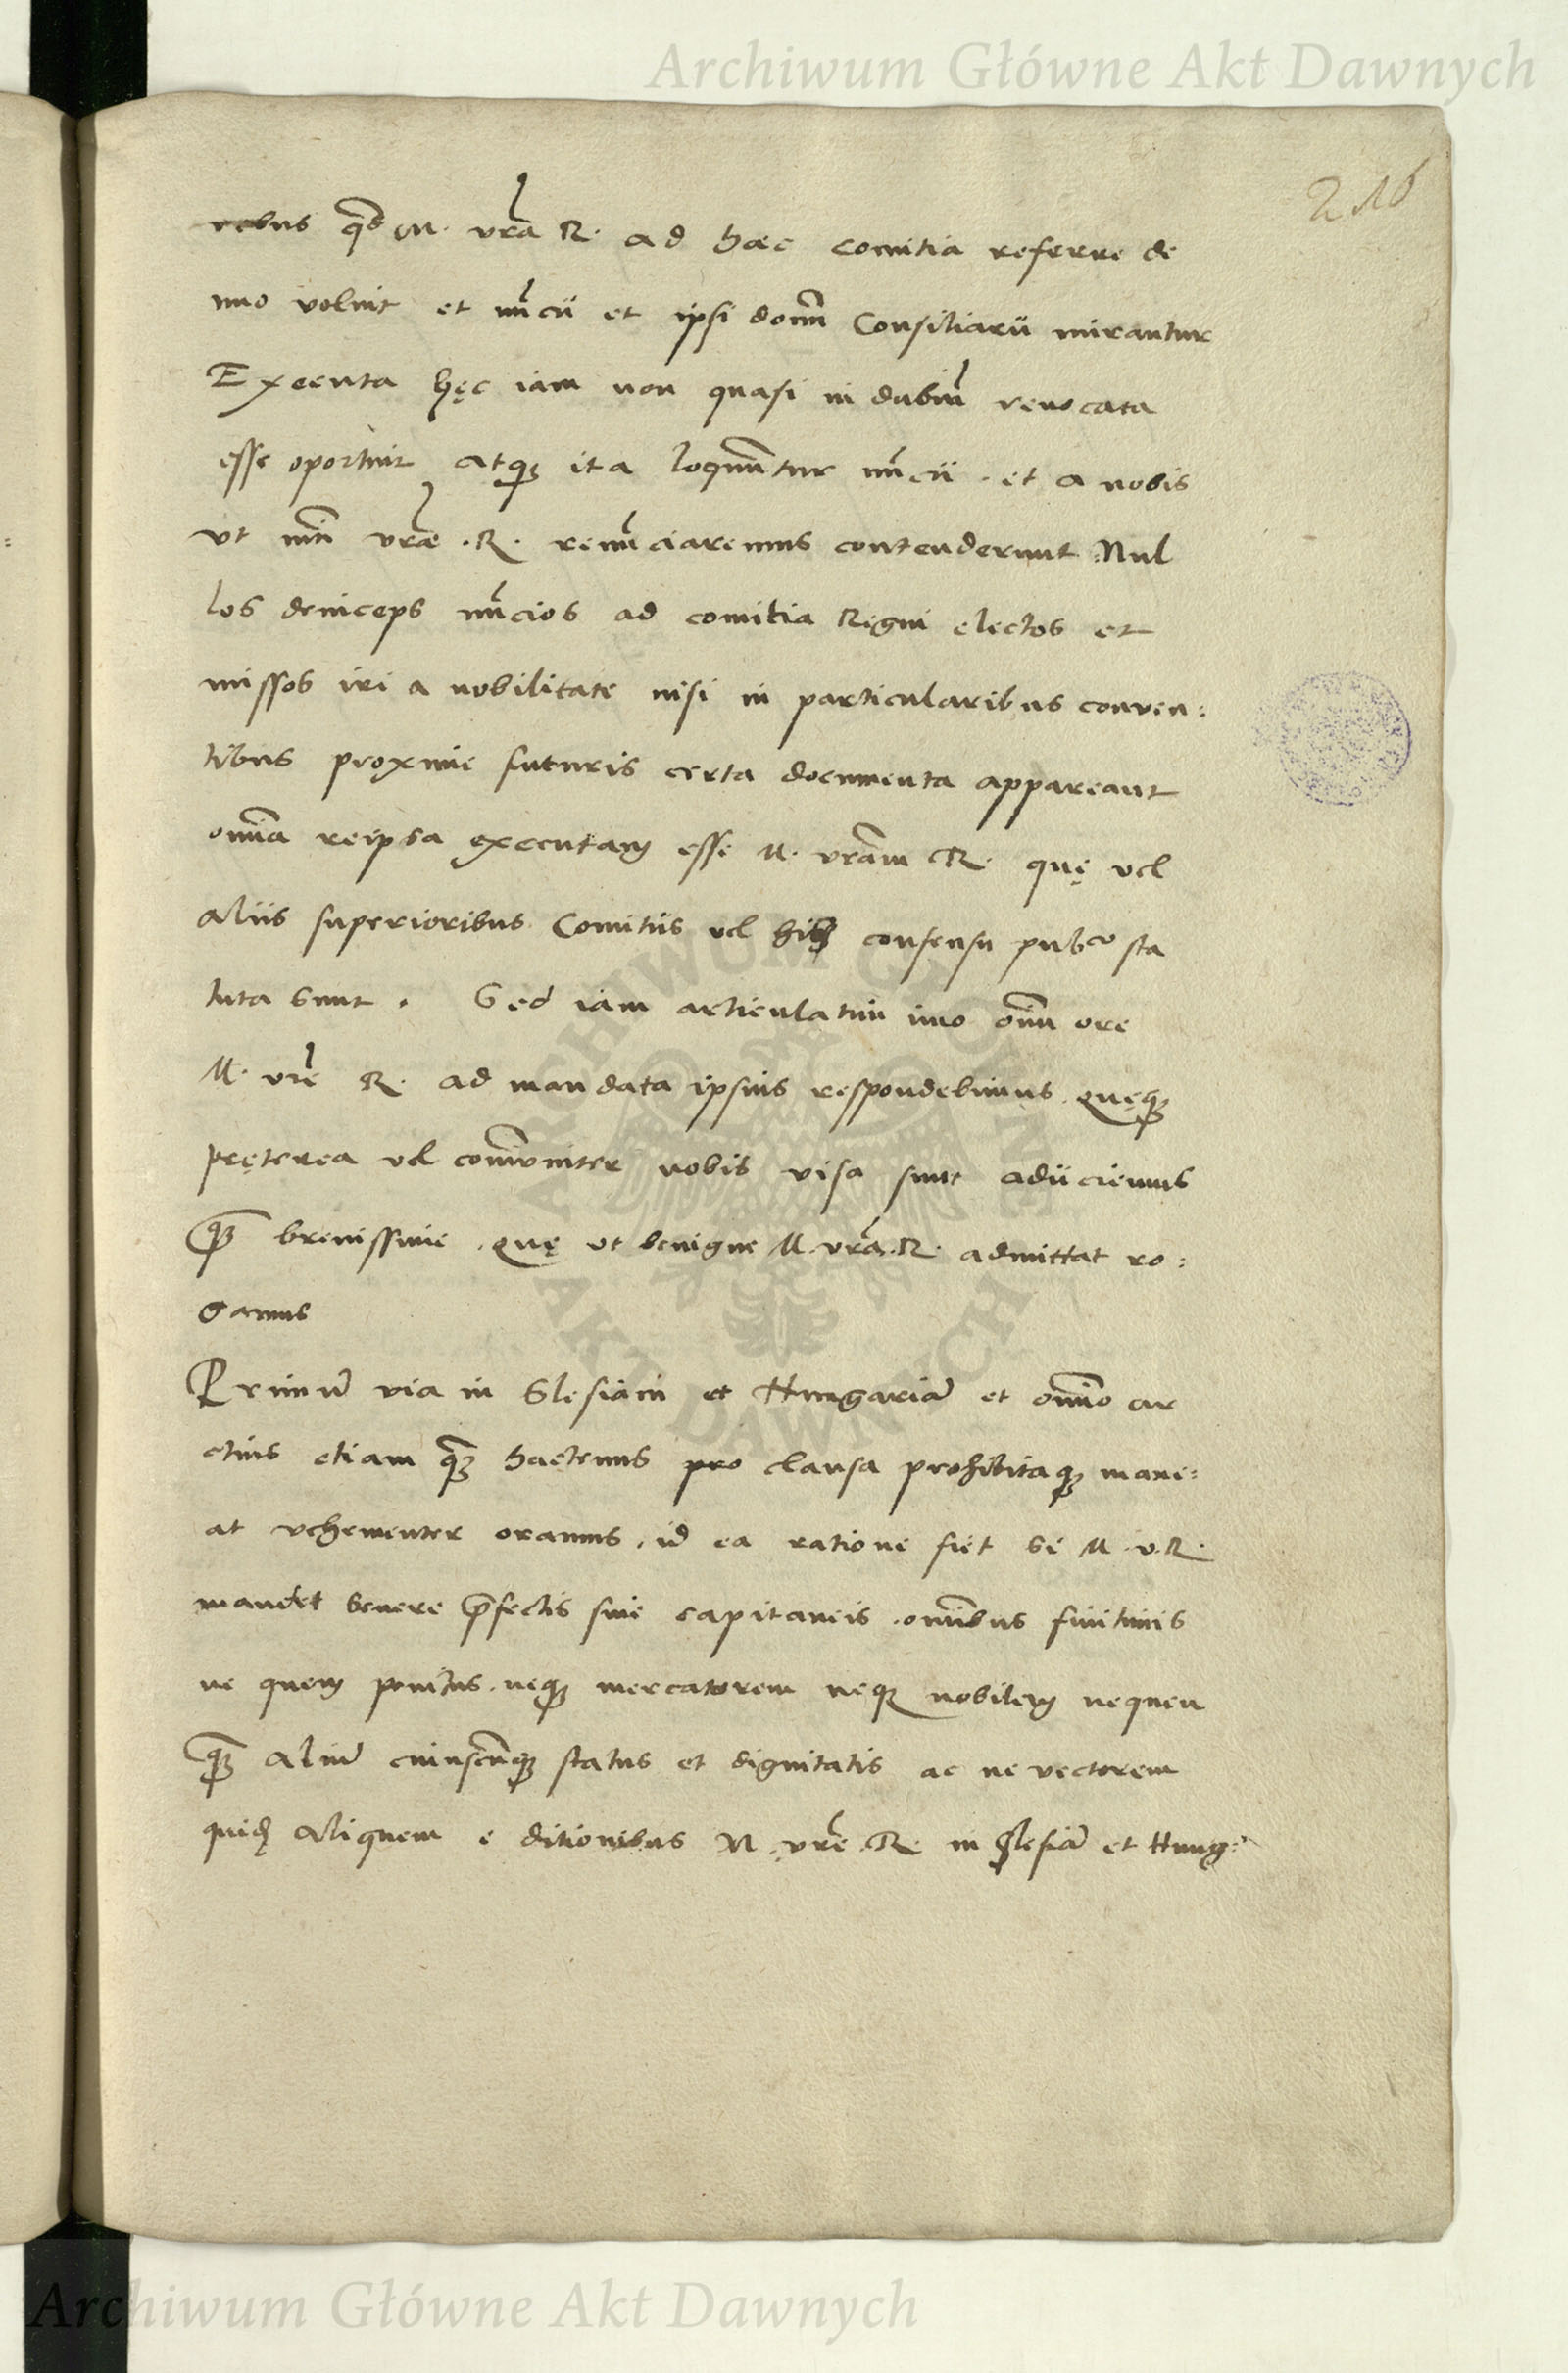 Archiwum Główne Akt Dawnych
216
rebus qd M. vra R. ad haec comitia referre de
nuo voluit et nūcii et ipsi domī Consiliarii mirantur
Executa hęc iam non quasi in dubiū revocata
esse oportuit atq3 ita loquūtur nūcii . et a nobis
vt mti vrae . R . renūciaremus contenderunt Nul
los deinceps nūcios ad comitia Regni electos et
missos iri a nobilitate nisi in particularibus conven:
tibus proxime futuris certa documenta appareant
omīa reipsa executam esse M. vrām R. quę vel
aliis superioribus Comitiis vel his consensu pubco sta
tuta sunt . Sed iam articulatim imo omī ore
M. vre R. ad mandata ipsius respondebimus . quęq3
pręterea vel comūniter nobis visa sunt adiiciemus
q3 brevissime . quę ut benigne M. vra . R. admittat ro:
gamus
Primū via in Slesiam et Hungariā et omīno ar
ctius etiam q3 hactenus pro clausa prohibitaq3 mane:
at vehementer oramus . id ea ratione fiet Si M . v . R.
mandet severe pfectis sive capitaneis . omībus finitimis
ne quem penitus . neq3 mercatorem neq3 nobilem nequen
q3 aliū cuiuscūq3 status et dignitatis ac ne vectorem
quidē aliquem e ditionibus M . vre . R. in Slesiā et Hung:
ARCHIWUM GŁÓWNE
AKT DAWNYCH
Archiwum Główne Akt Dawnych